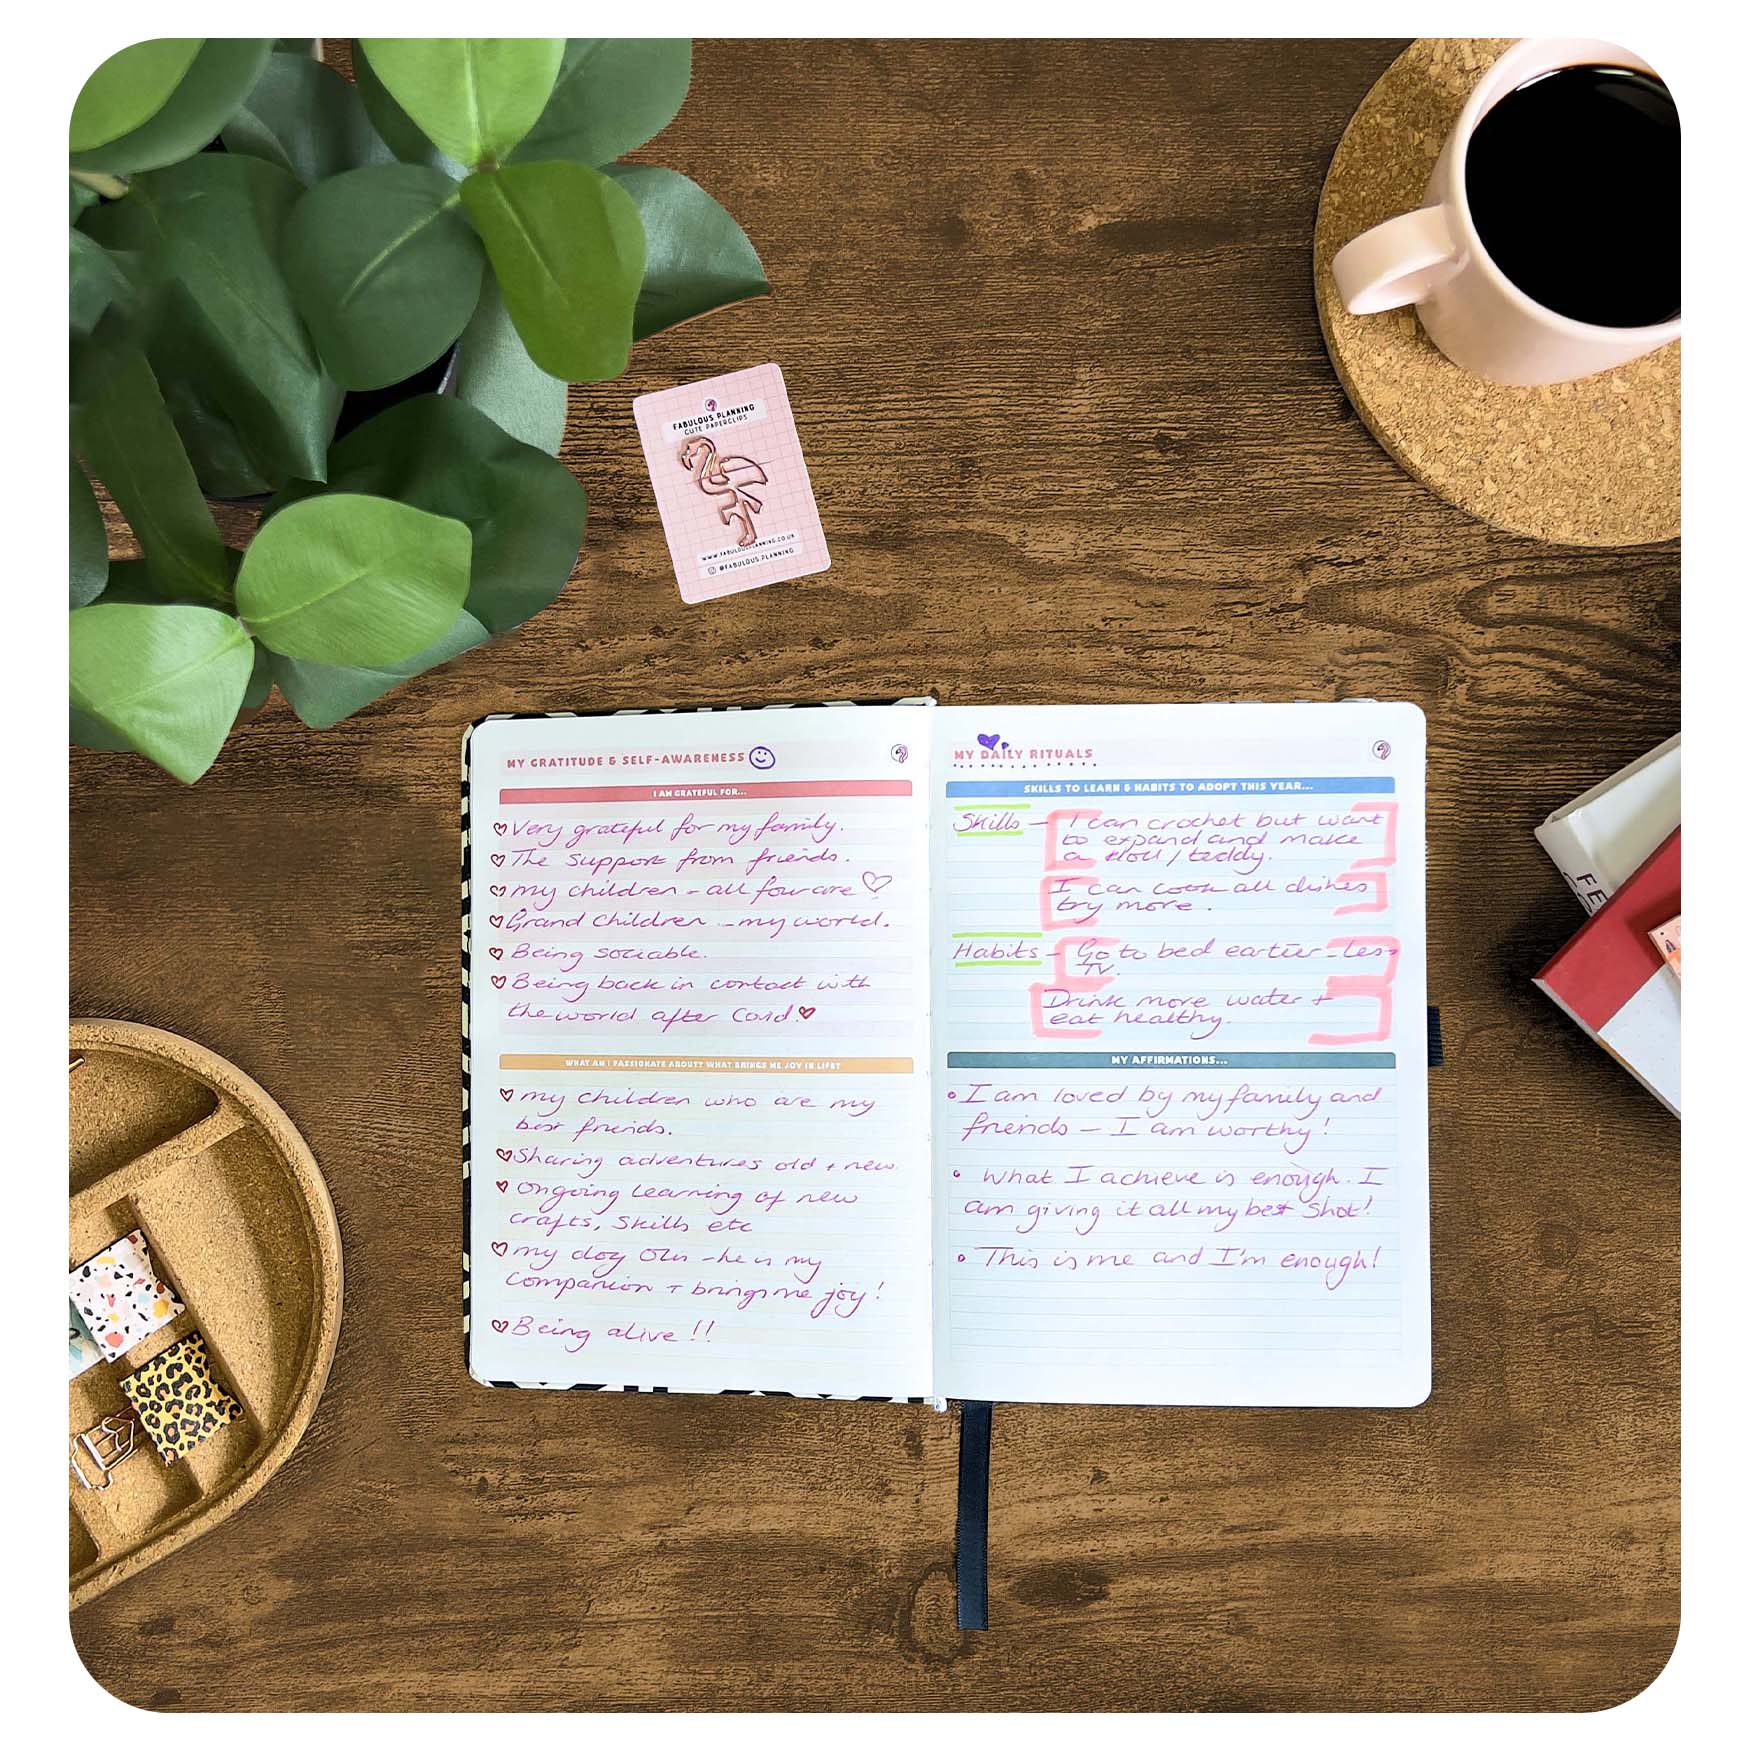 FABULOUS PLANNING
CUTE PAPERCLIPS
WWW.FABULOUSPLANNING.CO.UK
@FABULOUS.PLANNING
MY GRATITUDE & SELF-AWARENESS
I AM GRATEFUL FOR...
Very grateful for my family.
The support from friends.
my children - all four are
Grand children - my world.
Being sociable.
Being back in contact with
the world after Covid.
WHAT AM I PASSIONATE ABOUT? WHAT BRINGS ME JOY IN LIFE?
my children who are my
best friends.
Sharing adventures old + new.
ongoing learning of new
crafts, skills etc
my dog - he is my
companion + brings me joy!
Being alive!!
MY DAILY RITUALS
SKILLS TO LEARN & HABITS TO ADOPT THIS YEAR...
Skills - I can crochet but want
to expand and make
a doll/teddy.
I can cook all dishes
try more.
Habits - Go to bed earlier - Less
TV.
Drink more water +
eat healthy.
MY AFFIRMATIONS...
I am loved by my family and
friends - I am worthy!
What I achieve is enough. I
am giving it all my best shot!
This is me and I'm enough!
FE